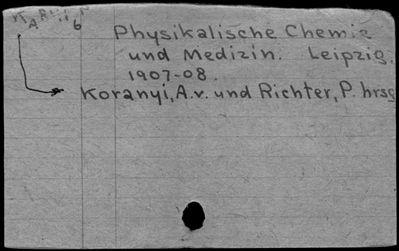 Physikalische Chemie
und Medizin. Leipzig.
1907-08.
Koranyi, A.v. und Richter, P. hrsg